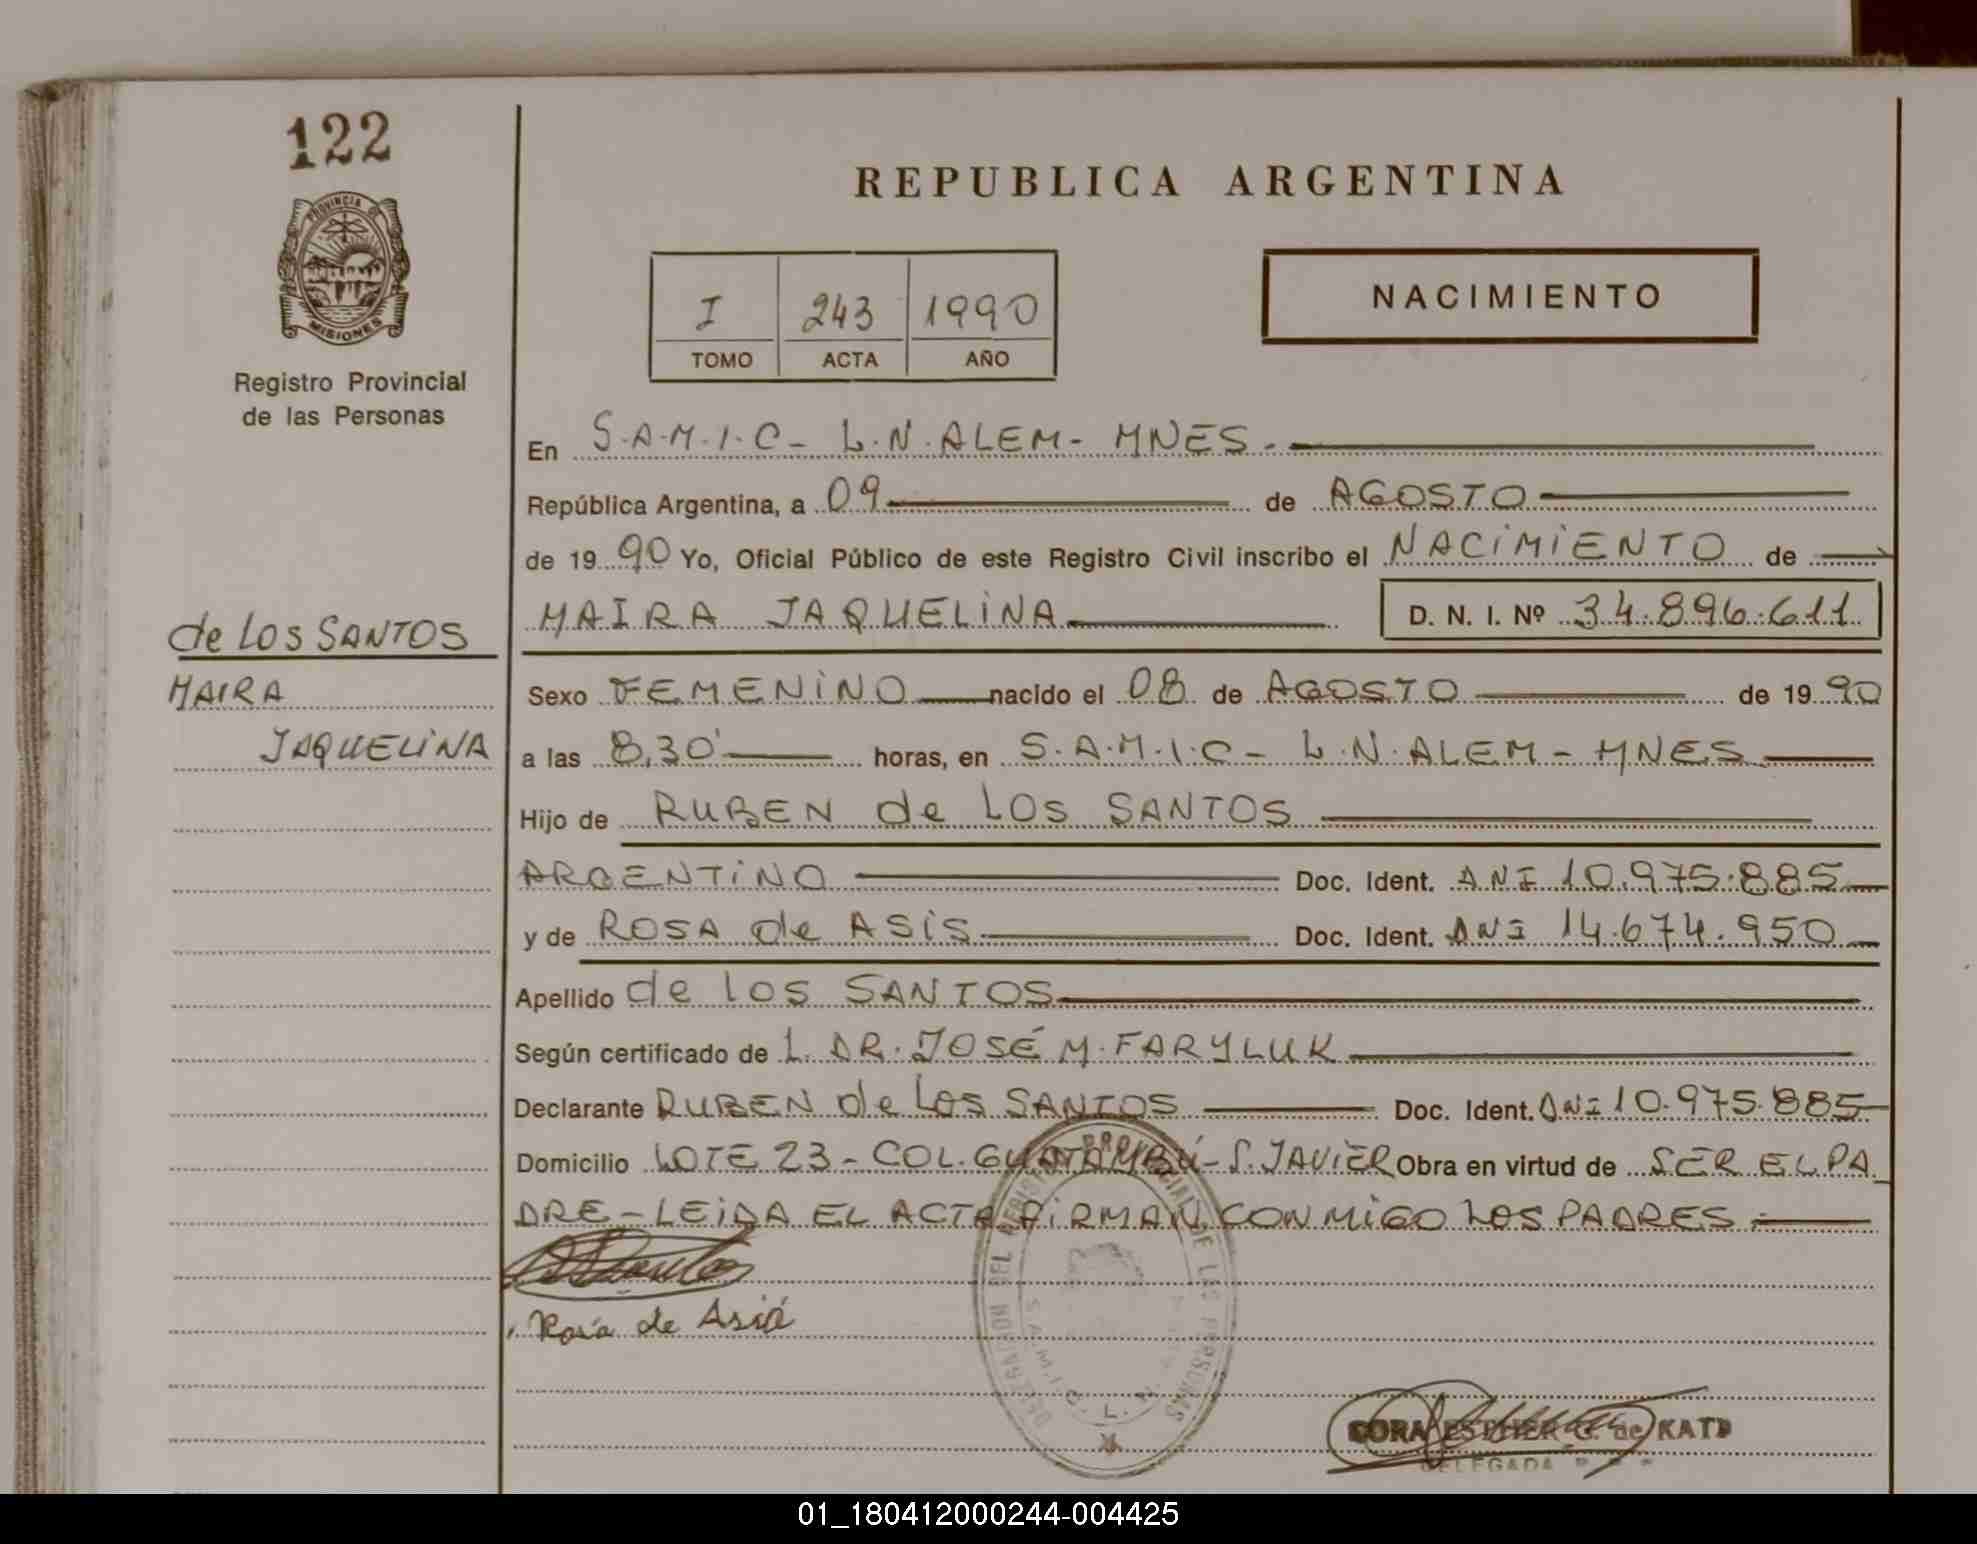 122
PROVINCIA DE
MISIONES
Registro Provincial
de las Personas
REPUBLICA ARGENTINA
I 243 1990
TOMO ACTA AÑO
NACIMIENTO
En S.A.M.I.C - L.N.ALEM - MNES.
República Argentina, a 09 de AGOSTO
de 1990 Yo, Oficial Público de este Registro Civil inscribo el NACIMIENTO de
MAIRA JAQUELINA D. N. I. Nº 34.896.611
de LOS SANTOS
MAIRA
JAQUELINA
Sexo FEMENINO nacido el 08 de AGOSTO de 1990
a las 8,30' horas, en S.A.M.I.C - L.N.ALEM - MNES
Hijo de RUBEN de LOS SANTOS
ARGENTINO Doc. Ident. DNI 10.975.885
y de ROSA de ASIS Doc. Ident. DNI 14.674.950
Apellido de LOS SANTOS
Según certificado de L. DR. JOSÉ M. FARYLUK
Declarante RUBEN de LOS SANTOS Doc. Ident. DNI 10.975.885
Domicilio LOTE 23 - COL. GUATAMBÚ - S. JAVIER Obra en virtud de SER EL PA
DRE - LEIDA EL ACTA FIRMAN CONMIGO LOS PADRES
Rosa de Asis
DELEGACION DEL REGISTRO PROVINCIAL DE LAS PERSONAS
S.A.M.I.C. L. N.
CORA ESTHER G. de KATD
DELEGADA
01_180412000244-004425